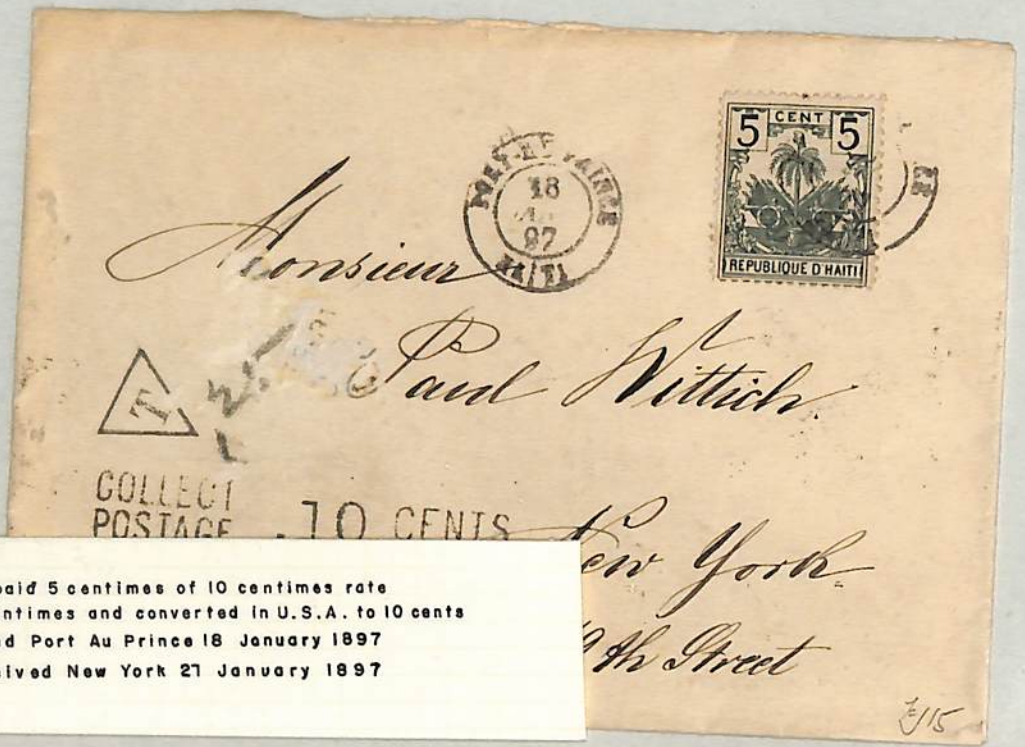 5 CENT 5
REPUBLIQUE D'HAITI
PORT-AU-PRINCE
18
97
HAITI
Monsieur
Paul Wittich.
T
COLLECT
POSTAGE 10 CENTS
New York
th Street
paid 5 centimes of 10 centimes rate
ntimes and converted in U.S.A. to 10 cents
d Port Au Prince 18 January 1897
ived New York 27 January 1897